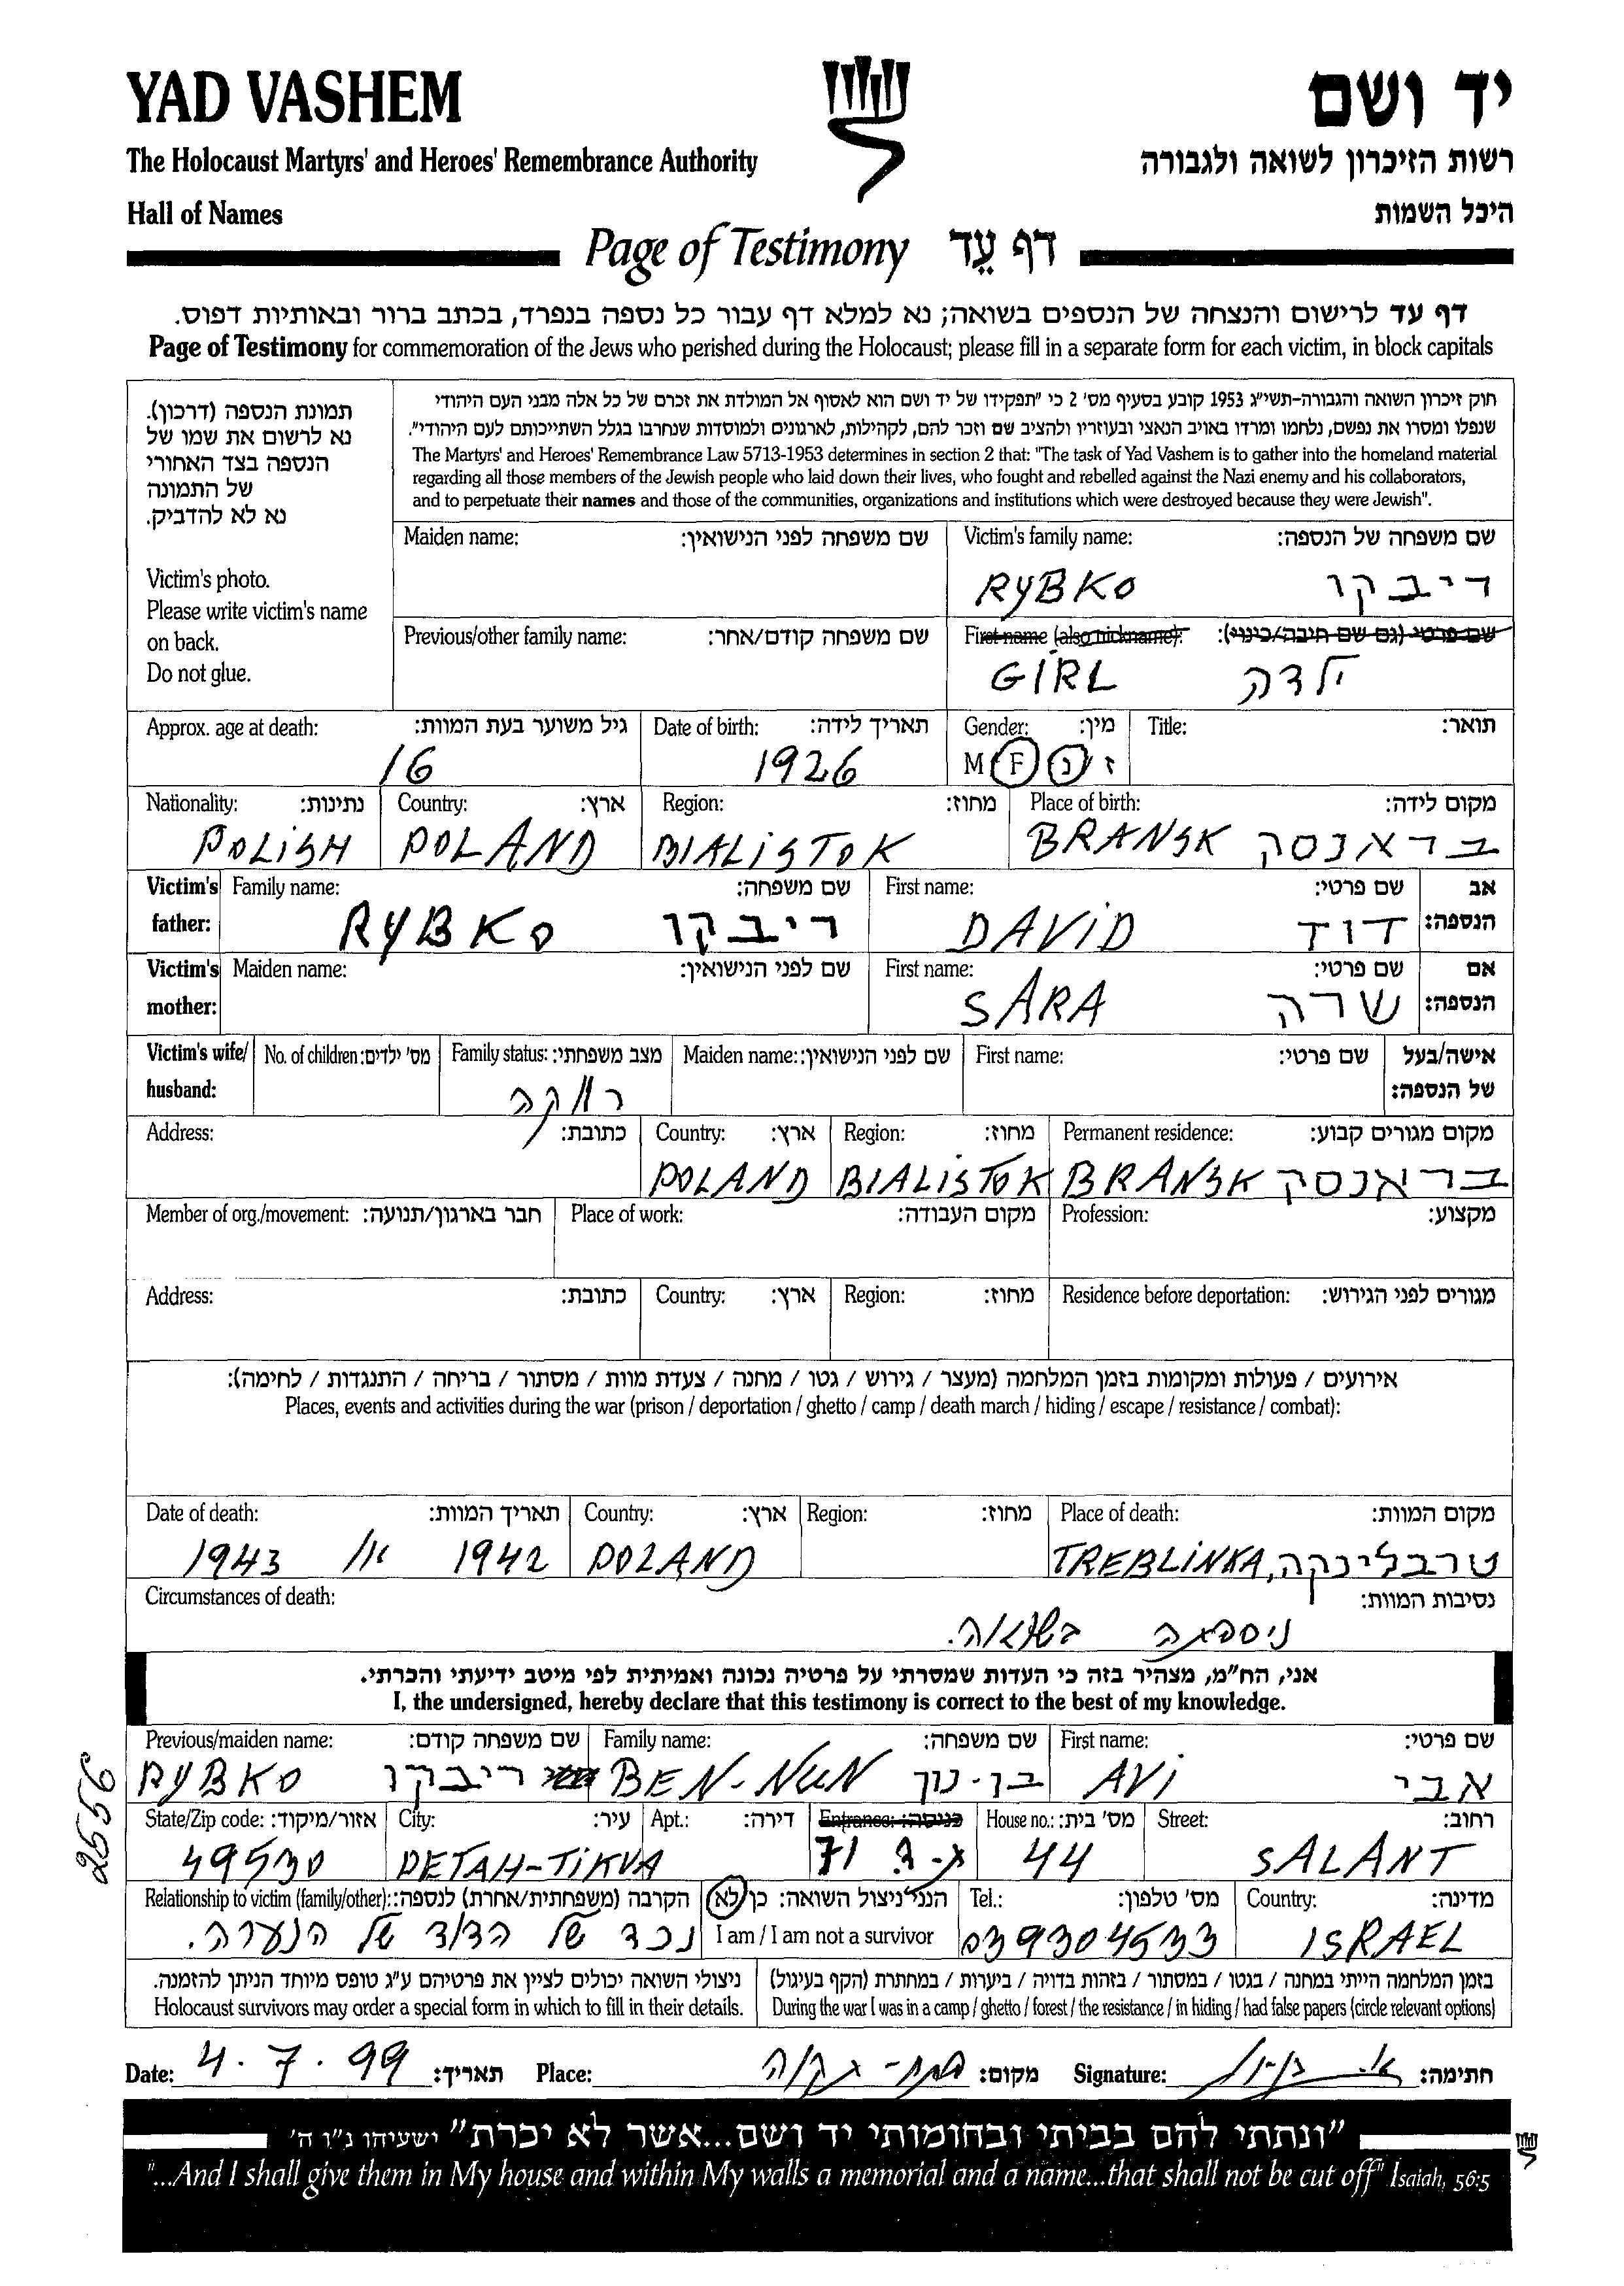 YAD VASHEM
יד ושם
The Holocaust Martyrs' and Heroes' Remembrance Authority
רשות הזיכרון לשואה ולגבורה
Hall of Names
היכל השמות
Page of Testimony דף עֵד
דף עד לרישום והנצחה של הנספים בשואה; נא למלא דף עבור כל נספה בנפרד, בכתב ברור ובאותיות דפוס.
Page of Testimony for commemoration of the Jews who perished during the Holocaust; please fill in a separate form for each victim, in block capitals
תמונת הנספה (דרכון).
נא לרשום את שמו של
הנספה בצד האחורי
של התמונה
נא לא להדביק.
Victim's photo.
Please write victim's name
on back.
Do not glue.
חוק זיכרון השואה והגבורה-תשי"ג 1953 קובע בסעיף מס' 2 כי "תפקידו של יד ושם הוא לאסוף אל המולדת את זכרם של כל אלה מבני העם היהודי
שנפלו ומסרו את נפשם, נלחמו ומרדו באויב הנאצי ובעוזריו ולהציב שם וזכר להם, לקהילות, לארגונים ולמוסדות שנחרבו בגלל השתייכותם לעם היהודי".
The Martyrs' and Heroes' Remembrance Law 5713-1953 determines in section 2 that: "The task of Yad Vashem is to gather into the homeland material
regarding all those members of the Jewish people who laid down their lives, who fought and rebelled against the Nazi enemy and his collaborators,
and to perpetuate their names and those of the communities, organizations and institutions which were destroyed because they were Jewish".
Maiden name: שם משפחה לפני הנישואין: Victim's family name: שם משפחה של הנספה:
RYBKO ריבקו
Previous/other family name: שם משפחה קודם/אחר: First name (also nickname): שם פרטי (גם שם חיבה/כינוי):
GIRL ילדה
Approx. age at death: גיל משוער בעת המוות: Date of birth: תאריך לידה: Gender: מין: Title: תואר:
16 1926 M F נ ז
Nationality: נתינות: Country: ארץ: Region: מחוז: Place of birth: מקום לידה:
POLISH POLAND BIALISTOK BRANSK בראנסק
Victim's father: Family name: שם משפחה: First name: שם פרטי: אב הנספה:
RYBKO ריבקו DAVID דוד
Victim's mother: Maiden name: שם לפני הנישואין: First name: שם פרטי: אם הנספה:
SARA שרה
Victim's wife/ husband: No. of children: מס' ילדים: Family status: מצב משפחתי: Maiden name: שם לפני הנישואין: First name: שם פרטי: אישה/בעל של הנספה:
רווקה
Address: כתובת: Country: ארץ: Region: מחוז: Permanent residence: מקום מגורים קבוע:
POLAND BIALISTOK BRANSK בראנסק
Member of org./movement: חבר בארגון/תנועה: Place of work: מקום העבודה: Profession: מקצוע:
Address: כתובת: Country: ארץ: Region: מחוז: Residence before deportation: מגורים לפני הגירוש:
אירועים / פעולות ומקומות בזמן המלחמה (מעצר / גירוש / גטו / מחנה / צעדת מוות / מסתור / בריחה / התנגדות / לחימה):
Places, events and activities during the war (prison / deportation / ghetto / camp / death march / hiding / escape / resistance / combat):
Date of death: תאריך המוות: Country: ארץ: Region: מחוז: Place of death: מקום המוות:
1943 או 1942 POLAND TREBLINKA, טרבלינקה
Circumstances of death: נסיבות המוות:
ניספתה בשואה.
אני, הח"מ, מצהיר בזה כי העדות שמסרתי על פרטיה נכונה ואמיתית לפי מיטב ידיעתי והכרתי.
I, the undersigned, hereby declare that this testimony is correct to the best of my knowledge.
Previous/maiden name: שם משפחה קודם: Family name: שם משפחה: First name: שם פרטי:
RYBKO ריבקו BEN-NUN בן-נון AVI אבי
State/Zip code: אזור/מיקוד: City: עיר: Apt.: דירה: Entrance: כניסה: House no.: מס' בית: Street: רחוב:
49530 PETAH-TIKVA 71 ת.ד 44 SALANT
Relationship to victim (family/other): הקרבה (משפחתית/אחרת) לנספה: הנני ניצול השואה: כן / לא Tel.: מס' טלפון: Country: מדינה:
נכד של הדוד של הנערה. I am / I am not a survivor 039304533 ISRAEL
ניצולי השואה יכולים לציין את פרטיהם ע"ג טופס מיוחד הניתן להזמנה. בזמן המלחמה הייתי במחנה / בגטו / במסתור / בזהות בדויה / ביערות / במחתרת (הקף בעיגול)
Holocaust survivors may order a special form in which to fill in their details. During the war I was in a camp / ghetto / forest / the resistance / in hiding / had false papers (circle relevant options)
Date: 4.7.99 תאריך: Place: פתח-תקוה מקום: Signature: חתימה:
"ונתתי להם בביתי ובחומותי יד ושם...אשר לא יכרת" ישעיהו נ"ו ה'
"...And I shall give them in My house and within My walls a memorial and a name...that shall not be cut off" Isaiah, 56:5
2556